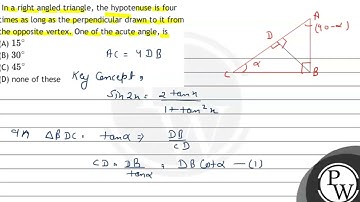 In a right angled triangle, the hypotenuse is four
times as long as the perpendicular drawn to it from
the opposite vertex. One of the acute angle, is
(A) 15°
(B) 30°
(C) 45°
(D) none of these
AC = 4DB
Key Concept,
Sin2x = 2tanx / 1+tan²x
ΔBDC, tanα ⇒ DB / CD
CD = DB / tanα = DB Cotα — (1)
A
(90-α)
D
α
C
B
PW